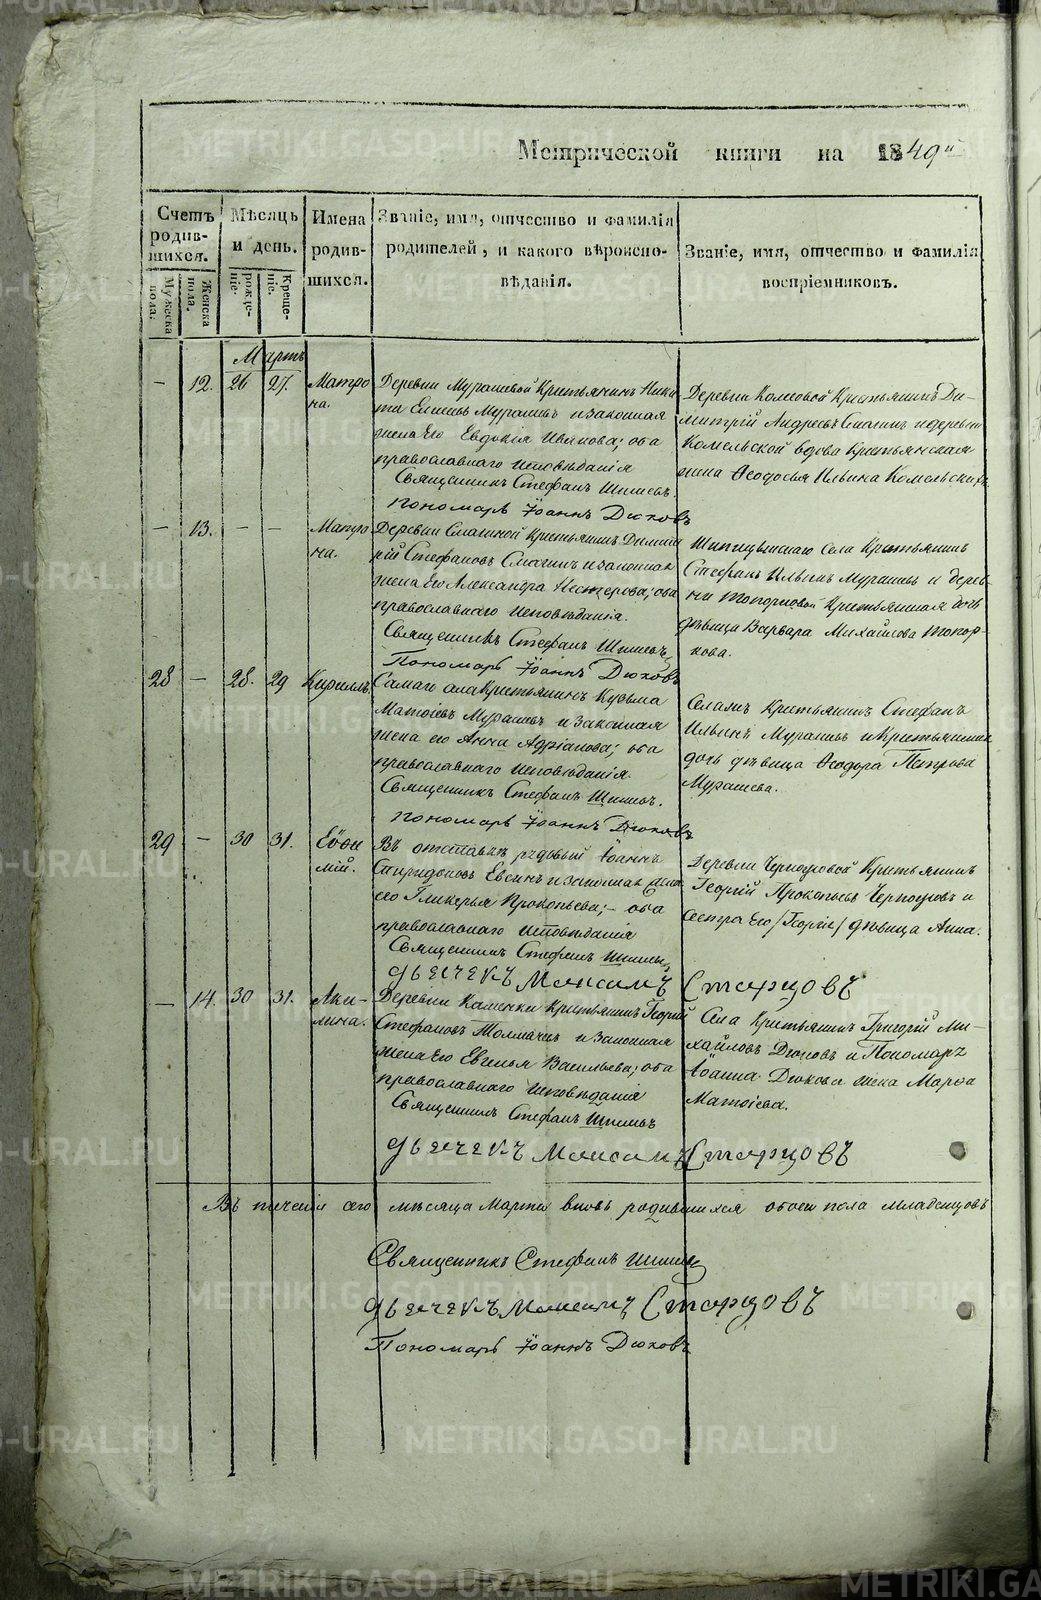 Метрической книги на 1849й
Счетъ родив-шихся.
Мѣсяцъ и день.
Имена родив-шихся.
Званіе, имя, отчество и фамилія родителей, и какого вѣроиспо-вѣданія.
Званіе, имя, отчество и фамилія воспріемниковъ.
Мужеска пола.
Женска пола.
рожде-ніе.
Креще-ніе.
Мартъ
— 12. 26 27. Матро-
на.
Деревни Мурашевой Крестьянинъ Ники-
та Мурашевъ и законная
жена Его Евдокія Иванова; оба
православнаго исповѣданія
Священникъ Стефанъ Шишевъ.
Пономарь Іоаннъ Дюковъ
Деревни Крестьянинъ Ди-
митрій Андреевъ Смагинъ и деревни
Комельской вдова Крестьянская
жена Ѳеодосья Ильина Комельскихъ
— 13. — — Матро-
на.
Деревни Смагиной Крестьянинъ Димит-
рій Стефановъ Смагинъ и законная
жена Его Александра Нестерова; оба
православнаго исповѣданія.
Священникъ Стефанъ Шишевъ
Пономарь Іоаннъ Дюковъ
Шипицынскаго Села Крестьянинъ
Стефанъ Ильинъ Мурашевъ и дерев-
ни Топорковой Крестьянская дочь
дѣвица Варвара Михайлова Топор-
кова.
28 — 28. 29 Кириллъ
Самаго села Крестьянинъ Кузьма
Матѳіевъ Мурашевъ и законная
жена его Анна Адріанова; оба
православнаго исповѣданія.
Священникъ Стефанъ Шишевъ.
Пономарь Іоаннъ Дюковъ
Крестьянинъ Стефанъ
Ильинъ Мурашевъ и Крестьянская
дочь дѣвица Ѳеодора Петрова
Мурашева.
29 — 30 31. Евѳи-
мій.
Въ отставкѣ рядовый Іоаннъ
Спиридоновъ Евсинъ и законная жена
его Гликерья Прокопьева; — оба
православнаго исповѣданія
Священникъ Стефанъ Шишевъ
Дьячекъ Максимъ Старцовъ
Деревни Черноусовой Крестьянинъ
Георгій Прокопьевъ Черноусовъ и
Сестра Его /Георгія/ дѣвица Анна.
— 14. 30 31. Аки-
лина.
Деревни Каменки Крестьянинъ Георгій
Стефановъ Толмачевъ и законная
жена Его Евгенья Васильева; оба
православнаго исповѣданія
Священникъ Стефанъ Шишевъ
Дьячекъ Максимъ Старцовъ
Села Крестьянинъ Григорій Ми-
хайловъ Дюковъ и Пономаря
Іоанна Дюкова жена Марѳа
Матѳіева.
Въ теченіи сего мѣсяца Марта вновь родившихся обоего пола младенцовъ
Священникъ Стефанъ Шишевъ
Дьячекъ Максимъ Старцовъ
Пономарь Іоаннъ Дюковъ
METRIKI.GASO-URAL.RU